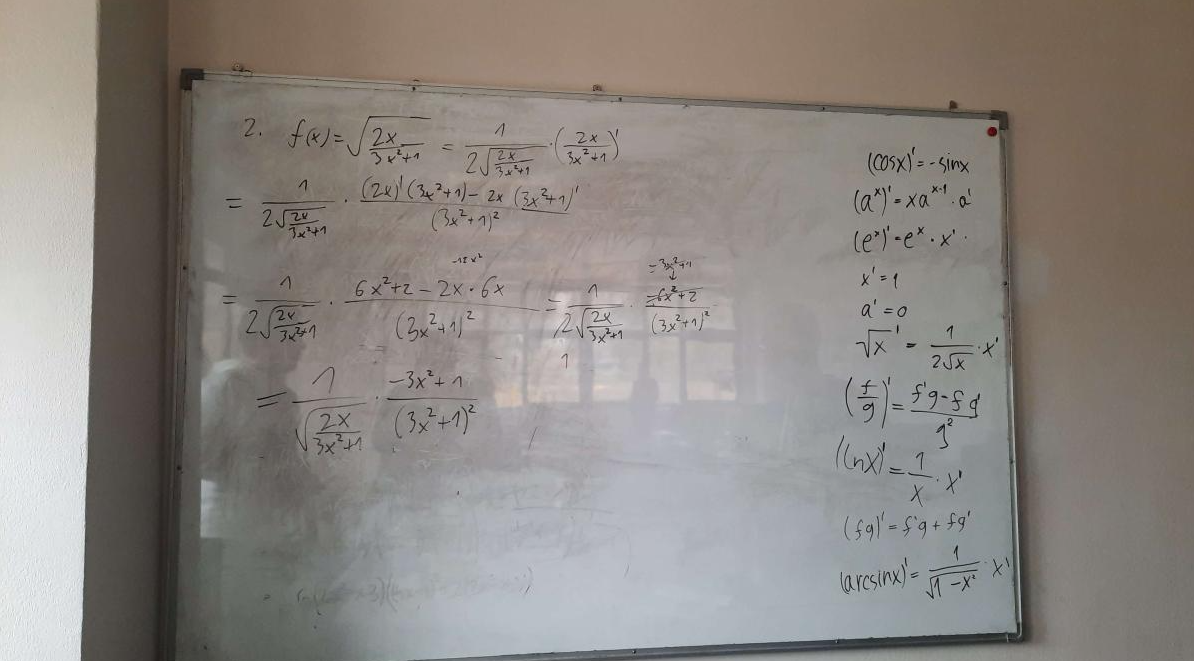 2. f(x) = √(2x/(3x²+1)) = 1/(2√(2x/(3x²+1))) · (2x/(3x²+1))'
= 1/(2√(2x/(3x²+1))) · ((2x)'(3x²+1) - 2x (3x²+1)')/(3x²+1)²
-12x²
= 3x²+1
= 1/(2√(2x/(3x²+1))) · (6x²+2 - 2x · 6x)/(3x²+1)² = 1/(2√(2x/(3x²+1))) · (-6x²+2)/(3x²+1)²
1
= 1/√(2x/(3x²+1)) · (-3x²+1)/(3x²+1)²
(cosx)' = -sinx
(aˣ)' = xaˣ⁻¹ · a'
(eˣ)' = eˣ · x'
x' = 1
a' = 0
√x' = 1/(2√x) · x'
(f/g)' = (f'g - fg')/g²
(lnx)' = 1/x · x'
(fg)' = f'g + fg'
(arcsinx)' = 1/√(1-x²) · x'